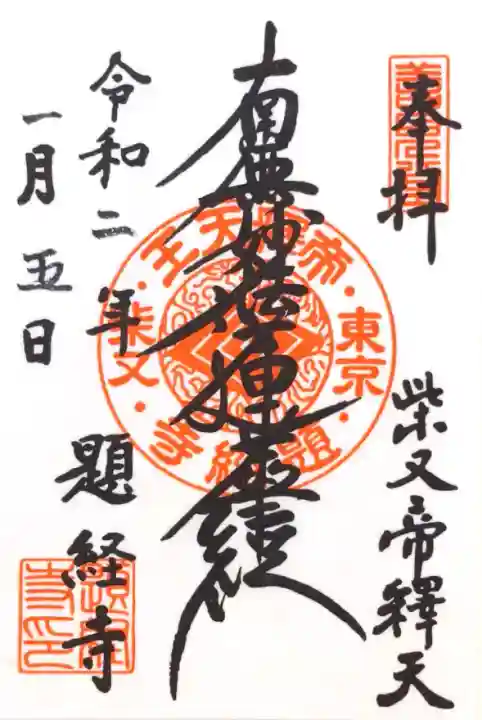 奉拝
柴又帝釋天
南無妙法蓮華経
令和二年
一月五日
題経寺
帝釋天王
東京
題経寺
柴又